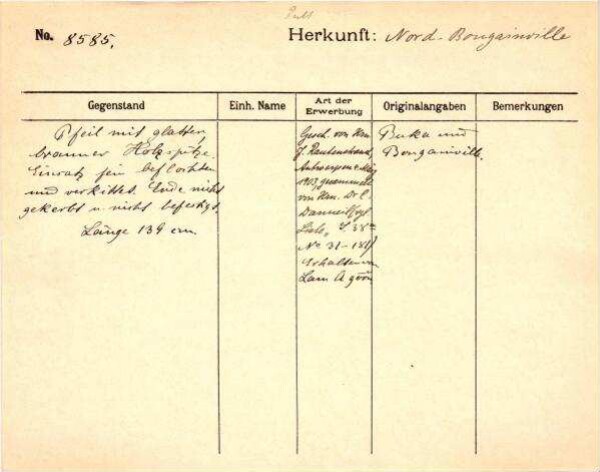 No. 8585.
Herkunft: Nord-Bougainville
Gegenstand
Einh. Name
Art der Erwerbung
Originalangaben
Bemerkungen
Pfeil mit glatter,
brauner Holzspitze.
Einsatz fein beflochten
und verkittet. Ende nicht
gekerbt u. nicht befestigt.
Länge 139 cm.
Gesch. von Hrn
J.
Antwerpen
1903, gesammelt
von Hrn. Dr.
No 31-
Erhalten
Buka und
Bougainville.